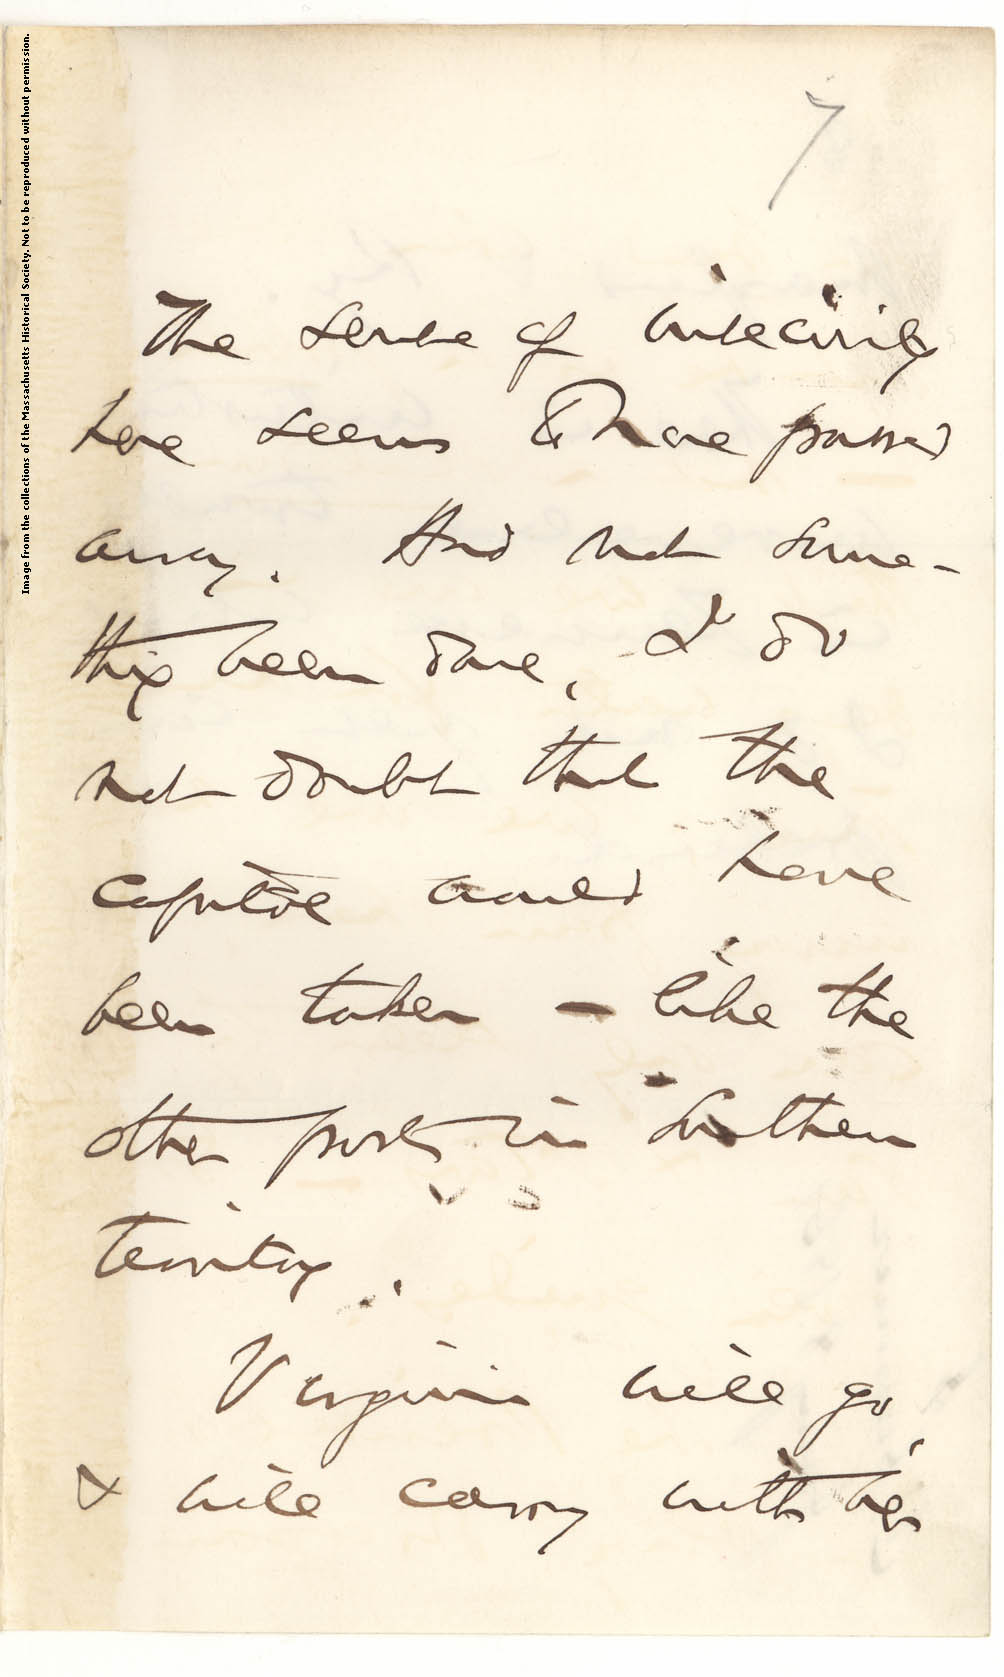 Image from the collections of the Massachusetts Historical Society. Not to be reproduced without permission.
7
The sense of insecurity
here seems to have passed
away. Had not some-
thing been done, I do
not doubt that the
capitol would have
been taken - like the
other posts in Southern
territory.
Virginia will go,
& will carry with her